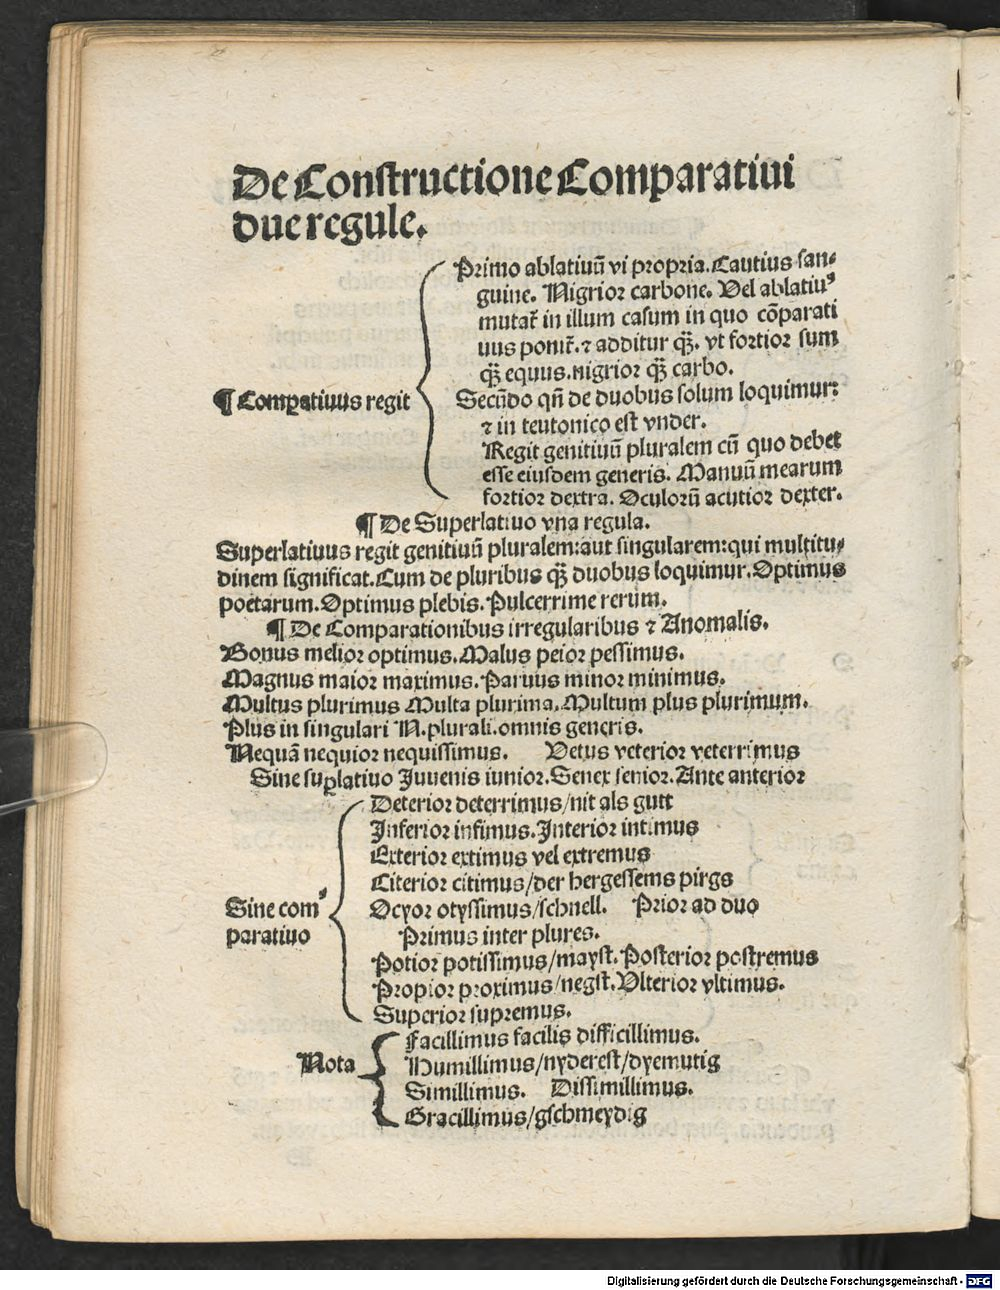 De Constructione Comparatiui
due regule.
Primo ablatiuū vi propria. Cautius san⸗
guine. Nigrior carbone. Vel ablatiu⁹
mutat᷑ in illum casum in quo cōparati
uus ponit᷑. ⁊ additur qꝫ̄. vt fortior sum
qꝫ̄ equus. nigrior qꝫ̄ carbo.
¶ Compatiuus regit
Secūdo qn̄ de duobus solum loquimur:
⁊ in teutonico est vnder.
Regit genitiuū pluralem cū quo debet
esse eiusdem generis. Manuū mearum
fortior dextra. Oculorū acutior dexter.
¶ De Superlatiuo vna regula.
Superlatiuus regit genitiuū pluralem: aut singularem: qui multitu⸗
dinem significat. Cum de pluribus qꝫ̄ duobus loquimur. Optimus
poetarum. Optimus plebis. Pulcerrime rerum.
¶ De Comparationibus irregularibus ⁊ Anomalis.
Bonus melior optimus. Malus peior pessimus.
Magnus maior maximus. Paruus minor minimus.
Multus plurimus Multa plurima. Multum plus plurimum.
Plus in singulari N. plurali. omnis generis.
Nequā nequior nequissimus. Vetus veterior veterrimus
Sine suꝑlatiuo Iuuenis iunior. Senex senior. Ante anterior
Deterior deterrimus/nit als gutt
Inferior infimus. Interior intimus
Exterior extimus vel extremus
Citerior citimus/der hergessems pirgs
Sine com⸗
paratiuo
Ocyor otyssimus/schnell. Prior ad duo
Primus inter plures.
Potior potissimus/mayst. Posterior postremus
Propior proximus/negst. Vlterior vltimus.
Superior supremus.
Nota
Facillimus facilis difficillimus.
Humillimus/nyderest/dyemutig
Simillimus. Dissimillimus.
Gracillimus/gschmeydig
Digitalisierung gefördert durch die Deutsche Forschungsgemeinschaft - DFG